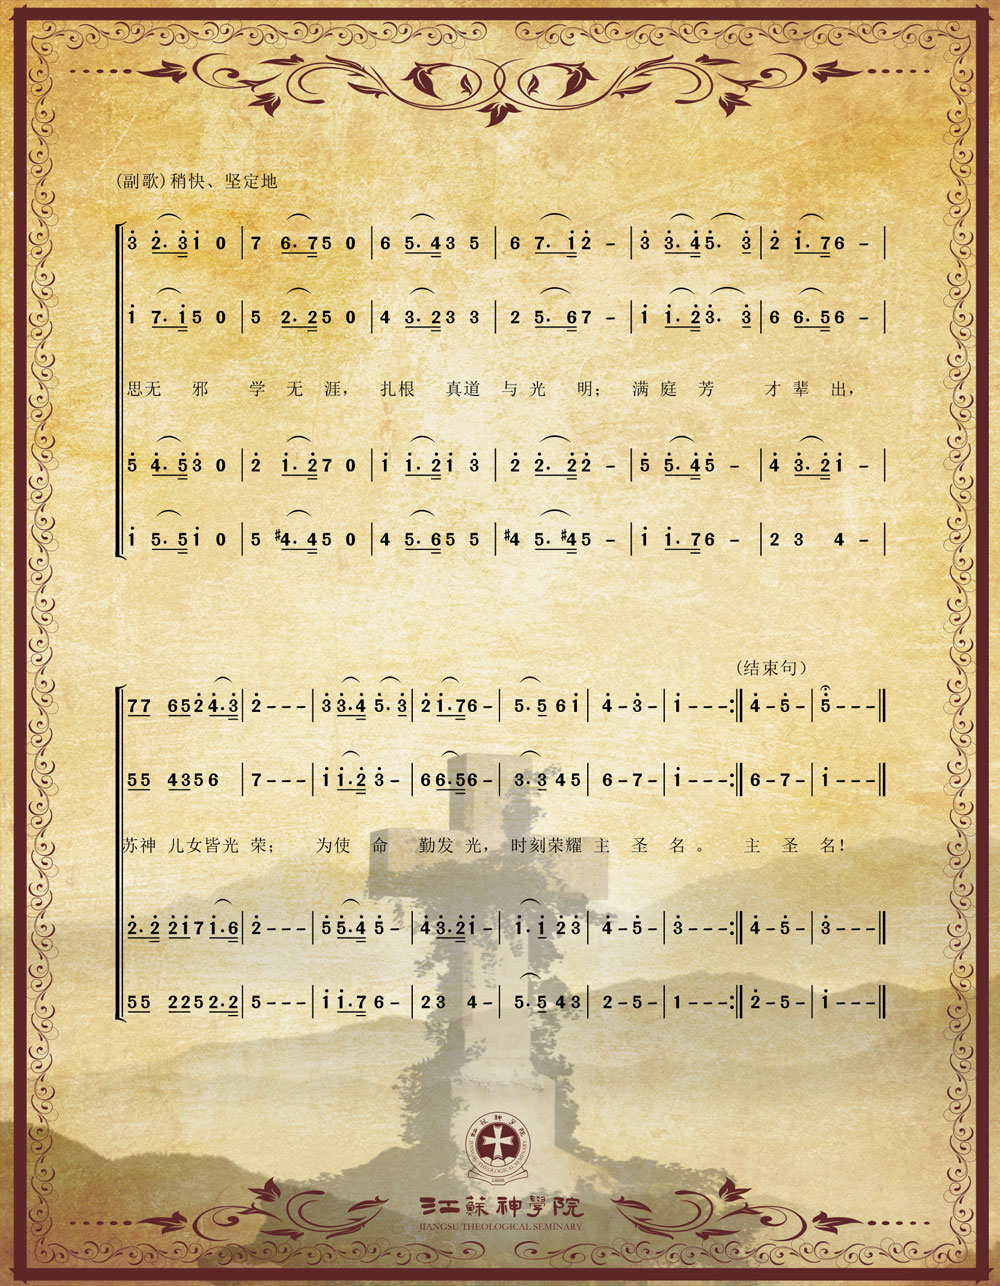 (副歌)稍快、坚定地
3 2. 3 1 0 | 7 6. 7 5 0 | 6 5. 4 3 5 | 6 7. 1 2 – | 3 3. 4 5. 3 | 2 1. 7 6 – |
1 7. 1 5 0 | 5 2. 2 5 0 | 4 3. 2 3 3 | 2 5. 6 7 – | 1 1. 2 3. 3 | 6 6. 5 6 – |
思无 邪 学 无 涯， 扎根 真道 与 光 明； 满 庭 芳 才 辈 出，
5 4. 5 3 0 | 2 1. 2 7 0 | 1 1. 2 1 3 | 2 2. 2 2 – | 5 5. 4 5 – | 4 3. 2 1 – |
1 5. 5 1 0 | 5 #4. 4 5 0 | 4 5. 6 5 5 | #4 5. #4 5 – | 1 1. 7 6 – | 2 3 4 – |
(结束句)
7 7 6 5 2 4. 3 | 2 – – – | 3 3. 4 5. 3 | 2 1. 7 6 – | 5. 5 6 1 | 4 – 3 – | 1 – – – :‖ 4 – 5 – | 5 – – – ‖
5 5 4 3 5 6 | 7 – – – | 1 1. 2 3 – | 6 6. 5 6 – | 3. 3 4 5 | 6 – 7 – | 1 – – – :‖ 6 – 7 – | 1 – – – ‖
苏神 儿女皆光 荣； 为使 命 勤发 光， 时刻荣耀 主 圣 名 。 主 圣 名！
2. 2 2 1 7 1. 6 | 2 – – – | 5 5. 4 5 – | 4 3. 2 1 – | 1. 1 2 3 | 4 – 5 – | 3 – – – :‖ 4 – 5 – | 3 – – – ‖
5 5 2 2 5 2. 2 | 5 – – – | 1 1. 7 6 – | 2 3 4 – | 5. 5 4 3 | 2 – 5 – | 1 – – – :‖ 2 – 5 – | 1 – – – ‖
江蘇神學院
JIANGSU THEOLOGICAL SEMINARY
1908
江蘇神學院
JIANGSU THEOLOGICAL SEMINARY